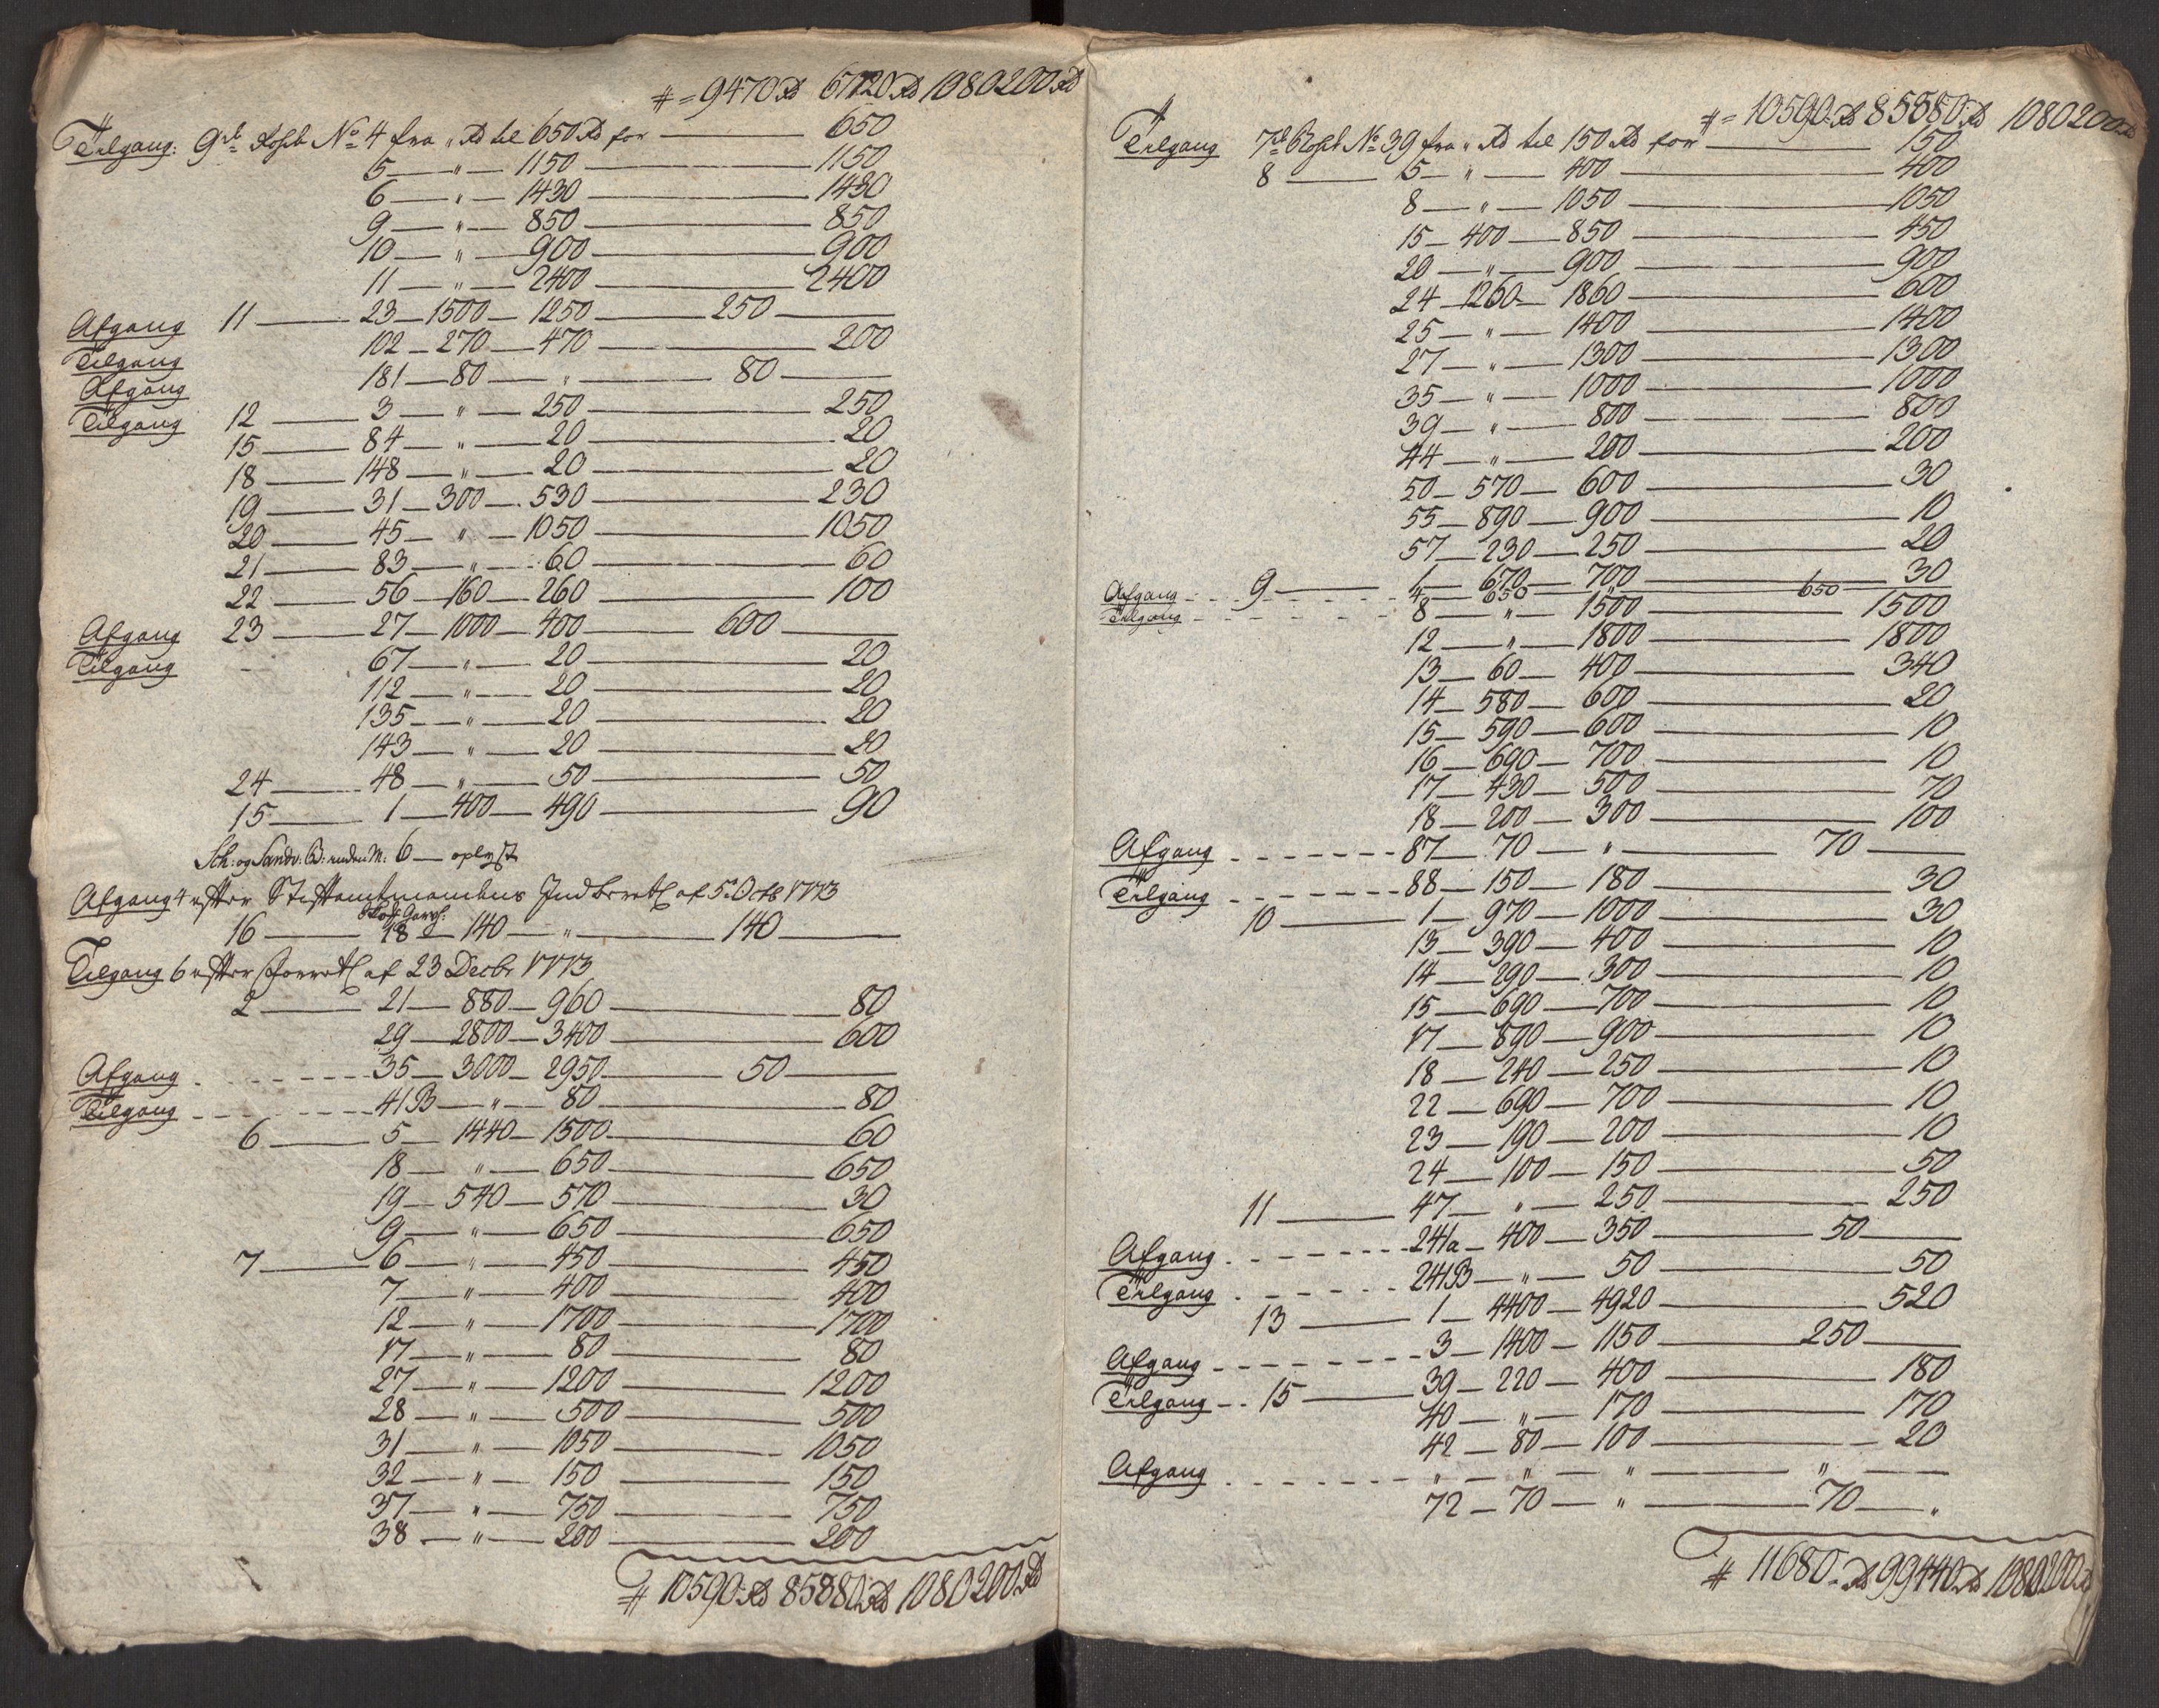 # = 9470 Rd 67120 Rd 1080200 Rd
Tilgang: 9de Rosch No 4 fra " Rd til 650 Rd for — 650
5 — " — 1150 — 1150
6 — " — 1430 — 1430
9 — " — 850 — 850
10 — " — 900 — 900
11 — " — 2400 — 2400
Afgang 11 — 23 — 1500 — 1250 — 250 —
Tilgang 102 — 270 — 470 — 200
Afgang 181 — 80 — " — 80 —
Tilgang 12 — 3 — " — 250 — 250
15 — 84 — " — 20 — 20
18 — 148 — " — 20 — 20
19 — 31 — 300 — 530 — 230
20 — 45 — " — 1050 — 1050
21 — 83 — " — 60 — 60
22 — 56 — 160 — 260 — 100
Afgang 23 — 27 — 1000 — 400 — 600 —
Tilgang 67 — " — 20 — 20
112 — " — 20 — 20
135 — " — 20 — 20
143 — " — 20 — 20
24 — 48 — " — 50 — 50
15 — 1 — 400 — 490 — 90
Sch: og Sandv: B: anden M: 6 — oplyst
Afgang 4 efter Stiftamtmandens Indberetl af 5 Octb 1773
16 — 18 — 140 — " — 140 —
Tilgang 6 efter af 23 Decbr 1773
2 — 21 — 880 — 960 — 80
29 — 2800 — 3400 — 600
Afgang 35 — 3000 — 2950 — 50 —
Tilgang 41B — " — 80 — 80
6 — 5 — 1440 — 1500 — 60
18 — " — 650 — 650
19 — 540 — 570 — 30
9 — " — 650 — 650
7 — 6 — " — 450 — 450
7 — " — 400 — 400
12 — " — 1700 — 1700
17 — " — 80 — 80
27 — " — 1200 — 1200
28 — " — 500 — 500
31 — " — 1050 — 1050
32 — " — 150 — 150
37 — " — 750 — 750
38 — " — 200 — 200
# 10590 Rd 85880 Rd 1080200 Rd
# = 10590 Rd 85880 Rd 1080200 Rd
Tilgang 7de Rosch No 39 fra " Rd til 150 Rd for — 150
8 — 5 — " — 400 — 400
8 — " — 1050 — 1050
15 — 400 — 850 — 450
20 — " — 900 — 900
24 — 1260 — 1860 — 600
25 — " — 1400 — 1400
27 — " — 1300 — 1300
35 — " — 1000 — 1000
39 — " — 800 — 800
44 — " — 200 — 200
50 — 570 — 600 — 30
55 — 890 — 900 — 10
57 — 230 — 250 — 20
9 — 1 — 670 — 700 — 30
Afgang 4 — 650 — " — 650
Tilgang 8 — " — 1500 — 1500
12 — " — 1800 — 1800
13 — 60 — 400 — 340
14 — 580 — 600 — 20
15 — 590 — 600 — 10
16 — 690 — 700 — 10
17 — 430 — 500 — 70
18 — 200 — 300 — 100
Afgang 87 — 70 — " — 70 —
Tilgang 88 — 150 — 180 — 30
10 — 1 — 970 — 1000 — 30
13 — 390 — 400 — 10
14 — 290 — 300 — 10
15 — 690 — 700 — 10
17 — 890 — 900 — 10
18 — 240 — 250 — 10
22 — 690 — 700 — 10
23 — 190 — 200 — 10
24 — 100 — 150 — 50
11 — 47 — " — 250 — 250
Afgang 241a — 400 — 350 — 50 —
Tilgang 241B — " — 50 — 50
13 — 1 — 4400 — 4920 — 520
Afgang 3 — 1400 — 1150 — 250 —
Tilgang 15 — 39 — 220 — 400 — 180
40 — " — 170 — 170
42 — 80 — 100 — 20
Afgang " — " — " — " —
72 — 70 — " — 70 — "
# 11680 Rd 99440 Rd 1080200 Rd